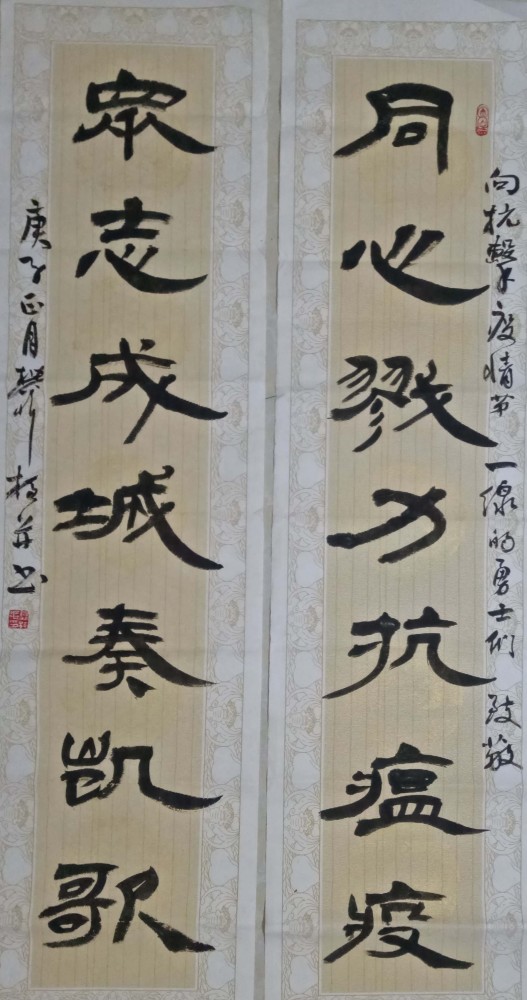 向抗擊疫情第一線的勇士们致敬
同心戮力抗瘟疫
眾志成城奏凯歌
庚子正月
书